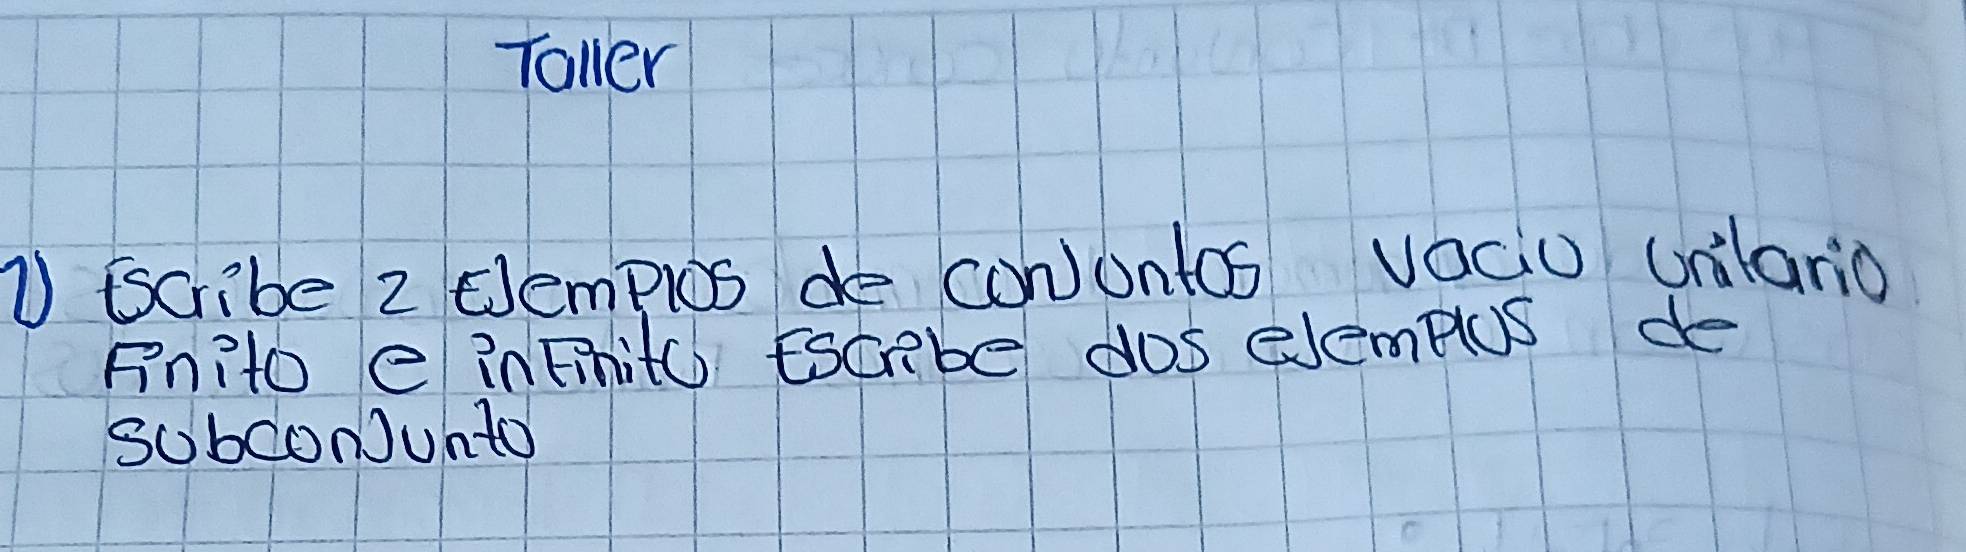 Taller
1) Escribe 2 Ejemplos de conjuntos vacio unitario
Finito e infinito Escribe dos ejemplos de
subconjunto